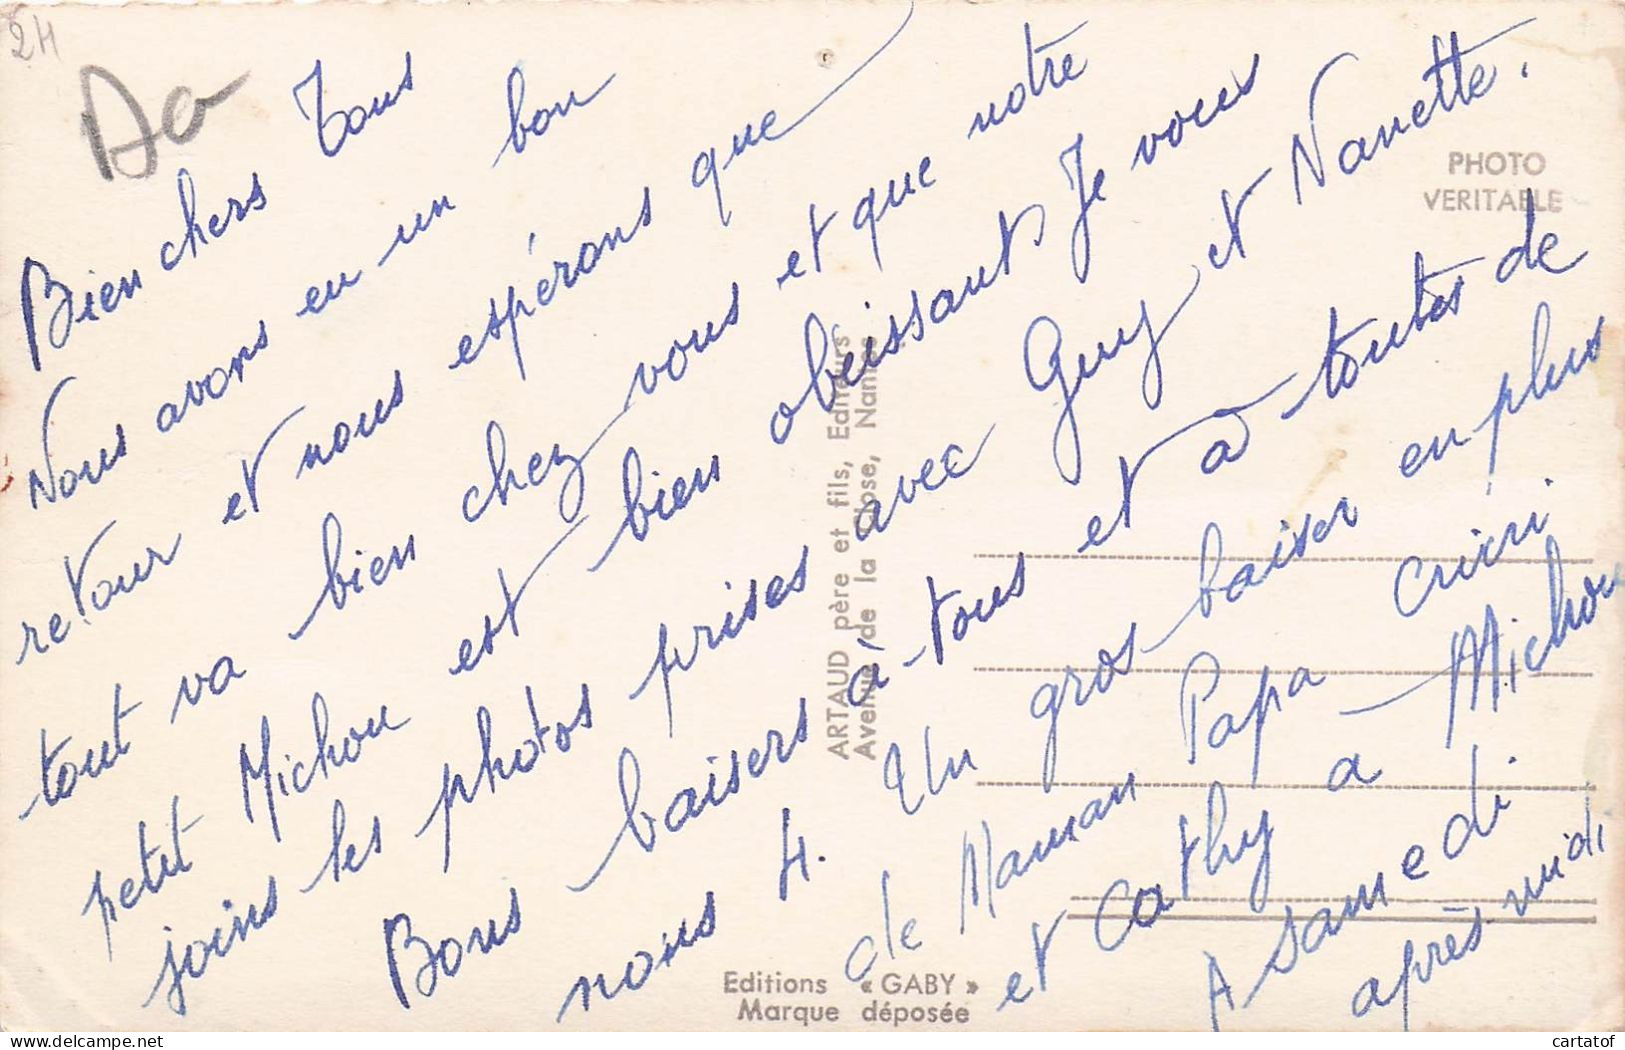 24
Bien chers Tous
Nous avons eu un bon
retour et nous espérons que
tout va bien chez vous et que notre
petit Michou est bien obeissant, Je vous
joins les photos prises avec Guy et Nanette.
Bons baisers à tous et a toutes de
nous 4. Un gros baiser en plus
de Maman Papa Cricri
et Cathy a Michou
A samedi.
après midi
PHOTO
VERITABLE
ARTAUD père et fils, Editeurs
Avenue de la Close, Nantes
Editions « GABY »
Marque déposée
delcampe.net
cartatof